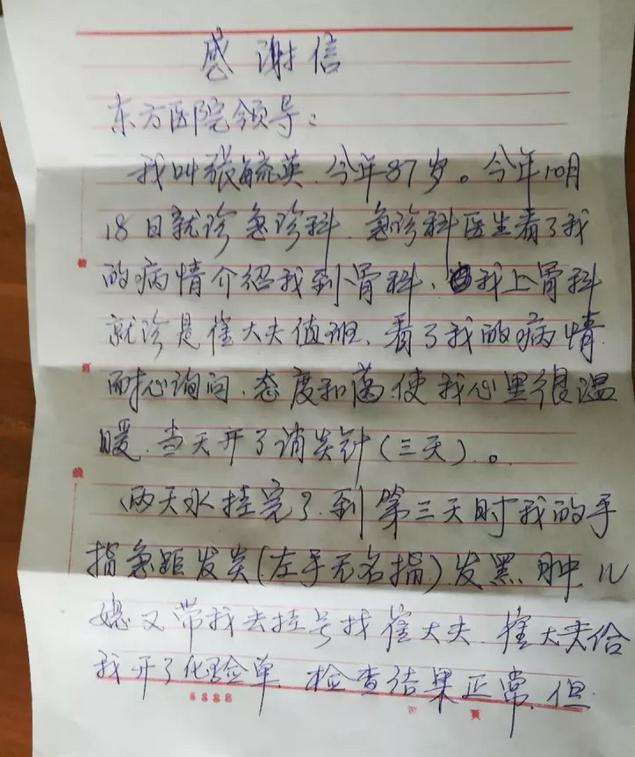 感谢信
东方医院领导：
我叫张毓英.今年87岁。今年10月
18日就诊急诊科.急诊科医生看了我
的病情介绍我到骨科、我上骨科
就诊是崔大夫值班.看了我的病情
耐心询问.态度和蔼.使我心里很温
暖.当天开了消炎针(三天)。
两天水挂完了.到第三天时我的手
指急距发炎(左手无名指)发黑.肿.儿
媳又带我去挂号找崔大夫.崔大夫给
我开了化验单.检查结果正常.但